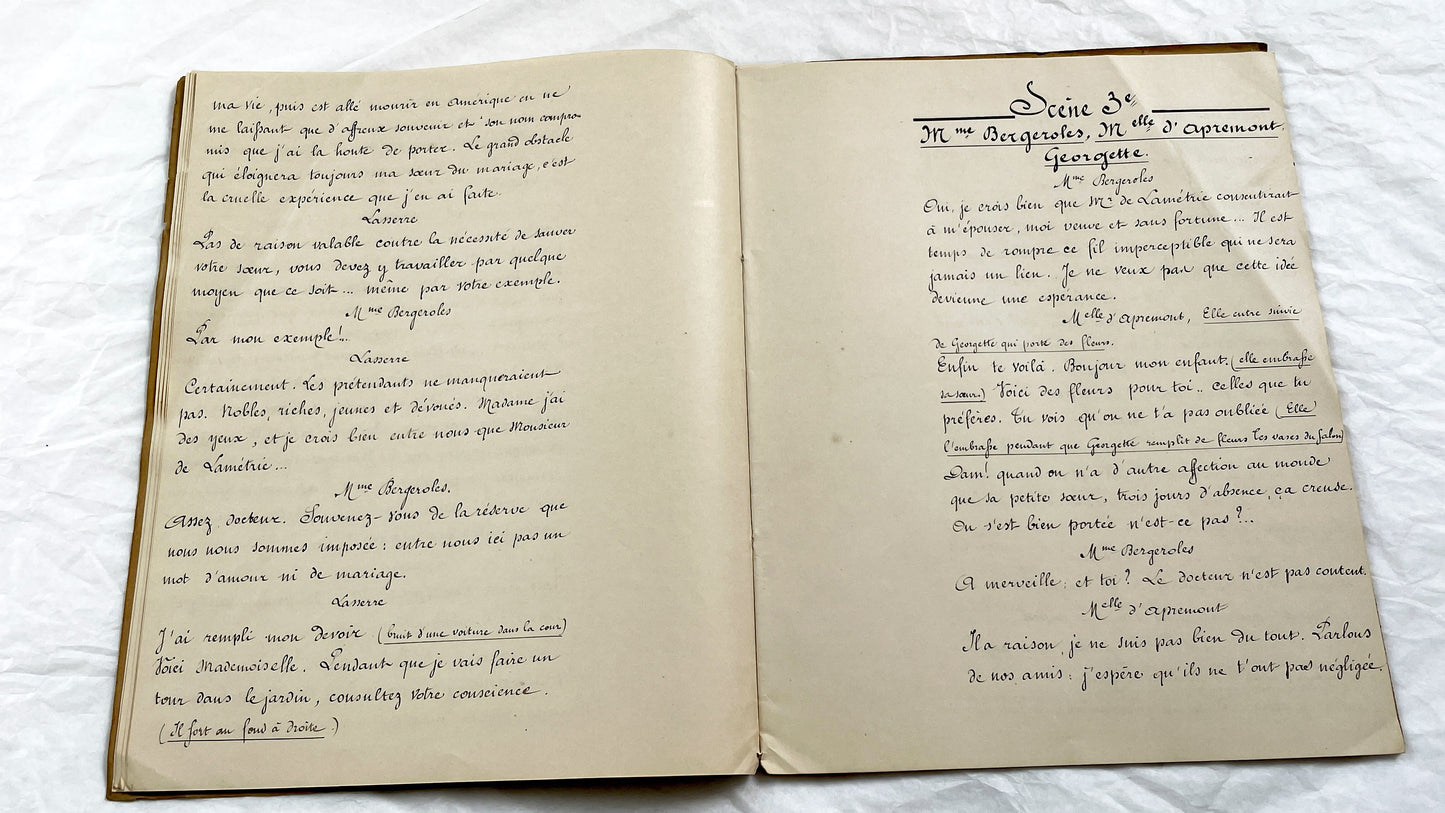 ma vie, puis est allé mourir en Amérique en ne
me laissant que d'affreux souvenir et son nom compro-
mis que j'ai la honte de porter. Le grand obstacle
qui éloignera toujours ma sœur du mariage, c'est
la cruelle expérience que j'en ai faite.
Lasserre
Pas de raison valable contre la nécessité de sauver
votre sœur, vous devez y travailler par quelque
moyen que ce soit... même par votre exemple.
Mme Bergeroles
Par mon exemple!..
Lasserre
Certainement. Les prétendants ne manqueraient
pas. Nobles, riches, jeunes et dévoués. Madame j'ai
des yeux, et je crois bien entre nous que Monsieur
de Lamétrie...
Mme Bergeroles.
Assez, docteur. Souvenez-vous de la réserve que
nous nous sommes imposée : entre nous ici pas un
mot d'amour ni de mariage.
Lasserre
J'ai rempli mon devoir (bruit d'une voiture dans la cour)
Voici Mademoiselle. Pendant que je vais faire un
tour dans le jardin, consultez votre conscience.
(Il sort au fond à droite.)
Scène 3e
Mme Bergeroles, Melle d'Apremont,
Georgette.
Mme Bergeroles
Oui, je crois bien que Mr de Lamétrie consentirait
à m'épouser, moi veuve et sans fortune... Il est
temps de rompre ce fil imperceptible qui ne sera
jamais un lien. Je ne veux pas que cette idée
devienne une espérance.
Melle d'Apremont, Elle entre suivie
de Georgette qui porte des fleurs.
Enfin te voilà. Bonjour mon enfant. (elle embrasse
sa sœur.) Voici des fleurs pour toi.. celles que tu
préfères. Tu vois qu'on ne t'a pas oubliée (Elle
l'embrasse pendant que Georgette remplit de fleurs les vases du salon)
Dam! quand on n'a d'autre affection au monde
que sa petite sœur, trois jours d'absence, ça creuse.
On s'est bien portée n'est-ce pas?..
Mme Bergeroles
A merveille; et toi? Le docteur n'est pas content.
Melle d'Apremont
Il a raison, je ne suis pas bien du tout. Parlons
de nos amis : j'espère qu'ils ne t'ont pas négligée.